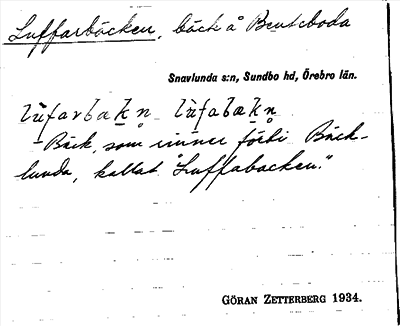 Luffarbäcken, bäck å Bentcboda
Snavlunda s:n, Sundbo hd, Örebro län.
lùfarbækn lùfabækn
Bäck, som rinner förbi Bäck-
lunda, kallat "Luffabacken."
GÖRAN ZETTERBERG 1934.